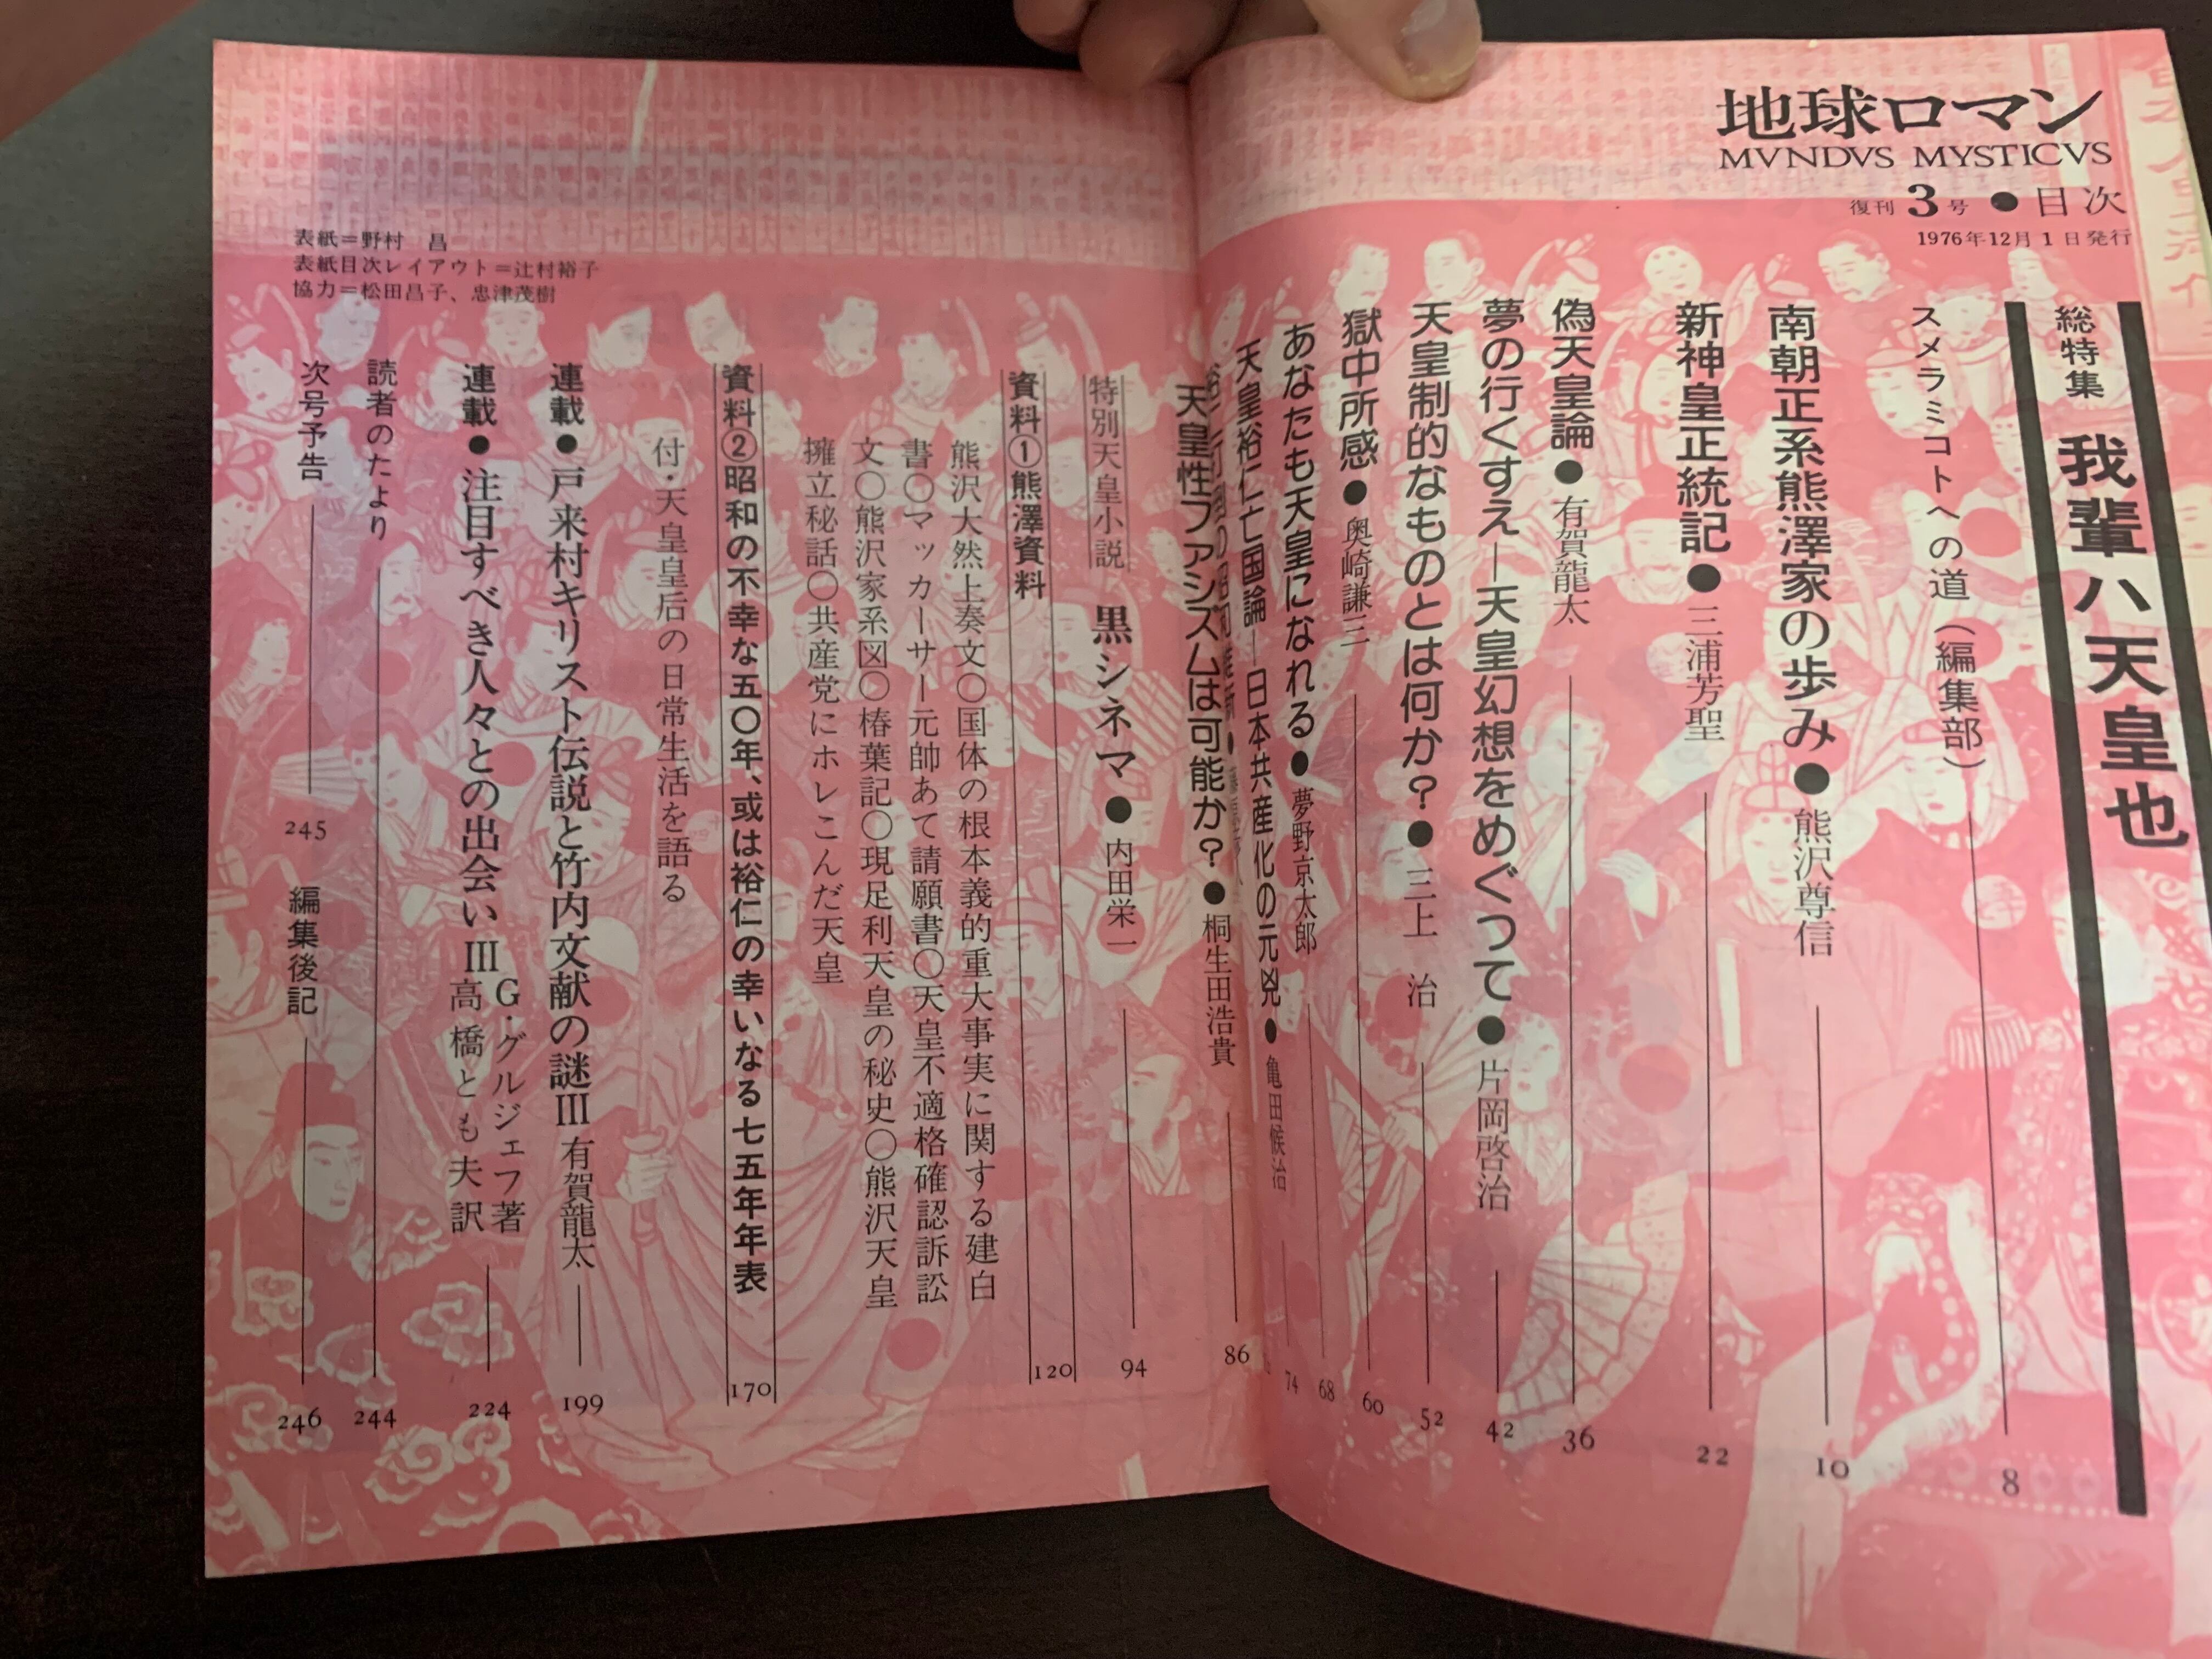 地球ロマン
MVNDVS MYSTICVS
復刊 3 号 ● 目次
1976年12月1日発行
総特集 我輩ハ天皇也
スメラミコトへの道（編集部） 8
南朝正系熊澤家の歩み●熊沢尊信 10
新神皇正統記●三浦芳聖 22
偽天皇論●有賀龍太 36
夢の行くすえ—天皇幻想をめぐつて●片岡啓治 42
天皇制的なものとは何か?●三上 治 52
獄中所感●奥崎謙三 60
あなたも天皇になれる●夢野京太郎 68
天皇裕仁亡国論—日本共産化の元兇●亀田候治 74
天皇性ファシズムは可能か?●桐生田浩貴 86
特別天皇小説 黒シネマ●内田栄一 94
資料①熊澤資料 120
熊沢大然上奏文○国体の根本義的重大事実に関する建白
書○マッカーサー元帥あて請願書○天皇不適格確認訴訟
文○熊沢家系図○椿葉記○現足利天皇の秘史○熊沢天皇
擁立秘話○共産党にホレこんだ天皇
資料②昭和の不幸な五〇年、或は裕仁の幸いなる七五年年表 170
付・天皇皇后の日常生活を語る
連載●戸来村キリスト伝説と竹内文献の謎Ⅲ 有賀龍太 199
連載●注目すべき人々との出会いⅢ G・グルジェフ著
高橋とも夫訳 224
読者のたより 244
次号予告 245
編集後記 246
表紙＝野村 昌
表紙目次レイアウト＝辻村裕子
協力＝松田昌子、忠津茂樹